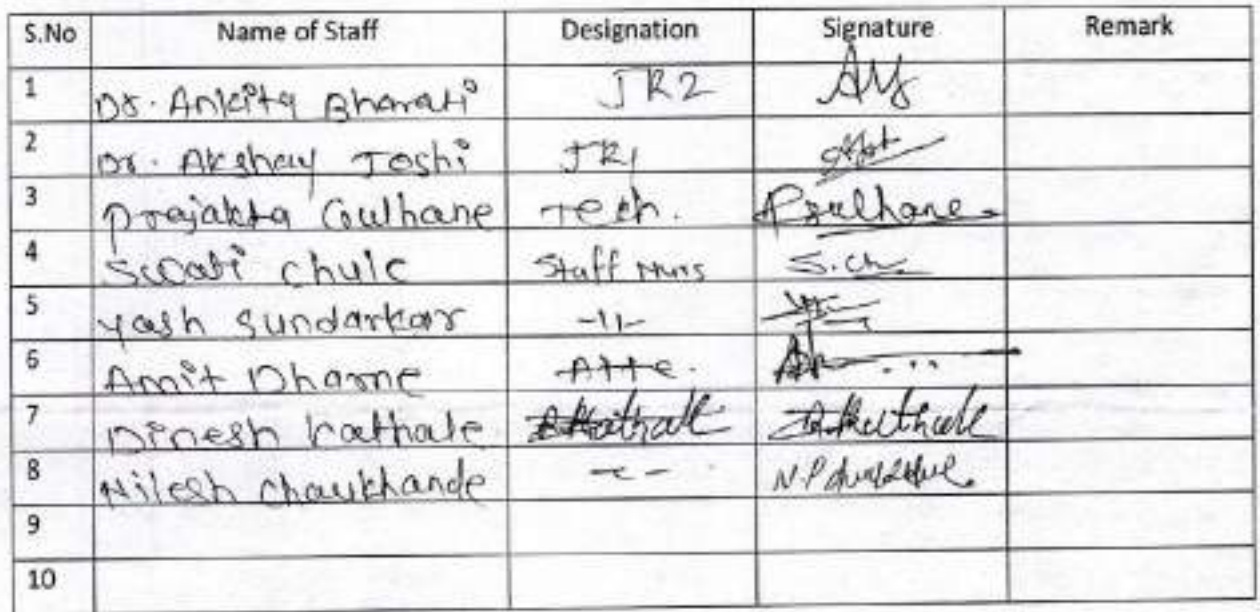 S.No Name of Staff Designation Signature Remark
1 Dr. Ankita Bharati JR2
2 Dr. Akshay Joshi JR1
3 Prajakta Gulhane Tech. PGulhane
4 Swati Chule Staff Nurs S.Ch.
5 Yash Sundarkar -11-
6 Amit Dharme Atte.
7 Dinesh Kathale
8 Nilesh Chaukhande
9
10